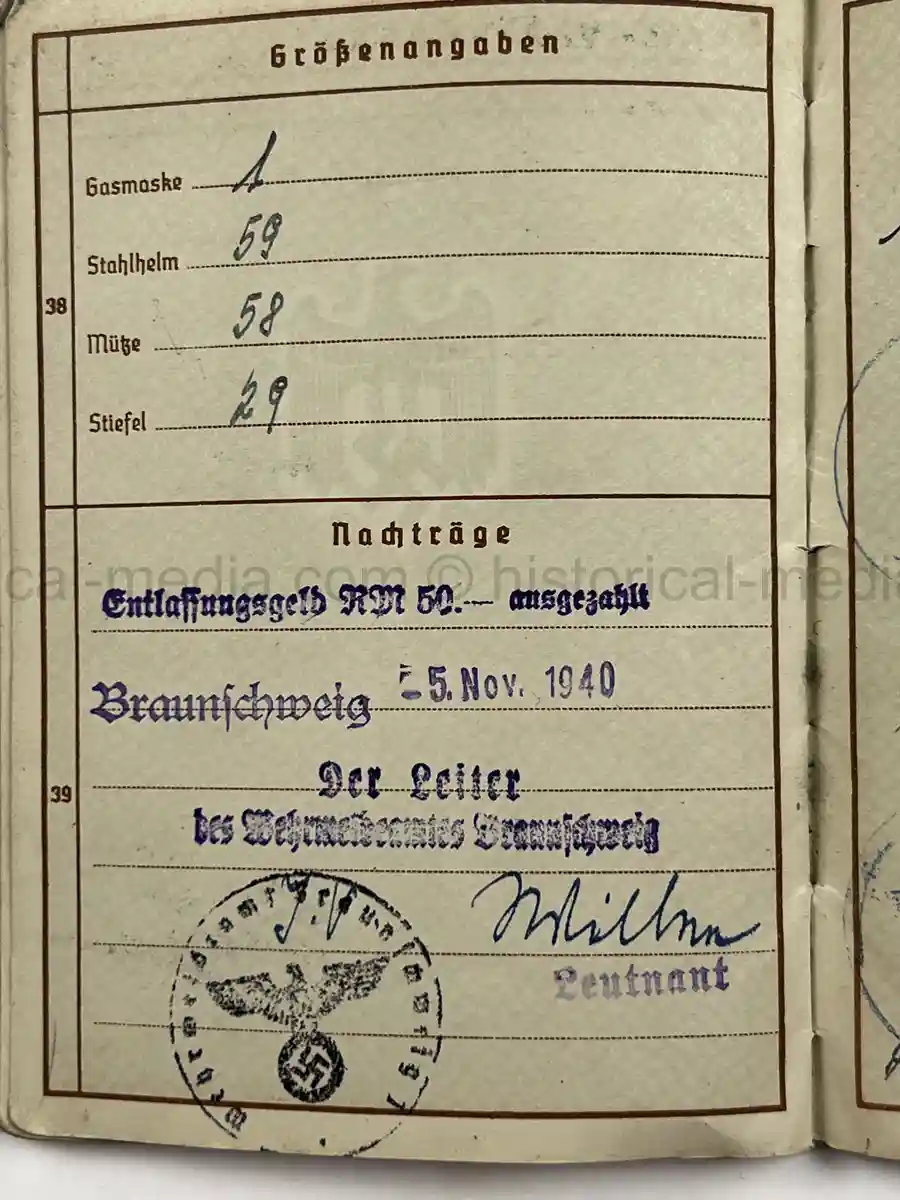 Größenangaben
38
Gasmaske 1
Stahlhelm 59
Mütze 58
Stiefel 29
Nachträge
cal-media.com © historical-media
Entlassungsgeld RM 50.— ausgezahlt
Braunschweig -5. Nov. 1940
39
Der Leiter
des Wehrmeldeamtes Braunschweig
Leutnant